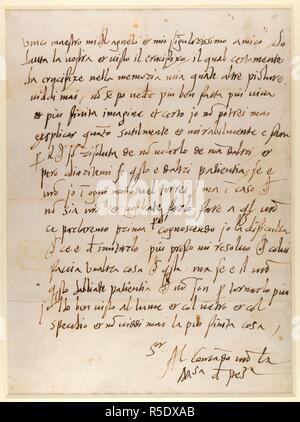 Unico maestro Michelagnelo et mio singularissimo amico. Ho
hauta la vostra et visto il crucifixo il qual certamente
ha crucifixe nella memoria mia quante altre picture
viddi mai, nō se po veder più ben fatta più viva
et più finita imagine et certo io nō potrei mai
explicar quāto sutilmente et mirabilmente è fatta
p il che risoluta de nō volerlo de mā daltri et
però chiaritemi se qsto è daltri patientia, se è
vro io ī ogni modo vel torrei, ma ī caso che
nō sia vro et vogliate farlo fare a ql vro
ce parlaremo prima pche cognoscendo io la dificultà
che ce è de imitarlo più presto mi resolvo che colui
faccia unaltra cosa che qsta, ma se è il vro
qsto habbiate patientia che nō son p tornarlo più
io lho ben visto al lume et col vetro et col
specchio et nō viddi mai la più finita cosa,
Son
Al comādamēto vro La
de pesca